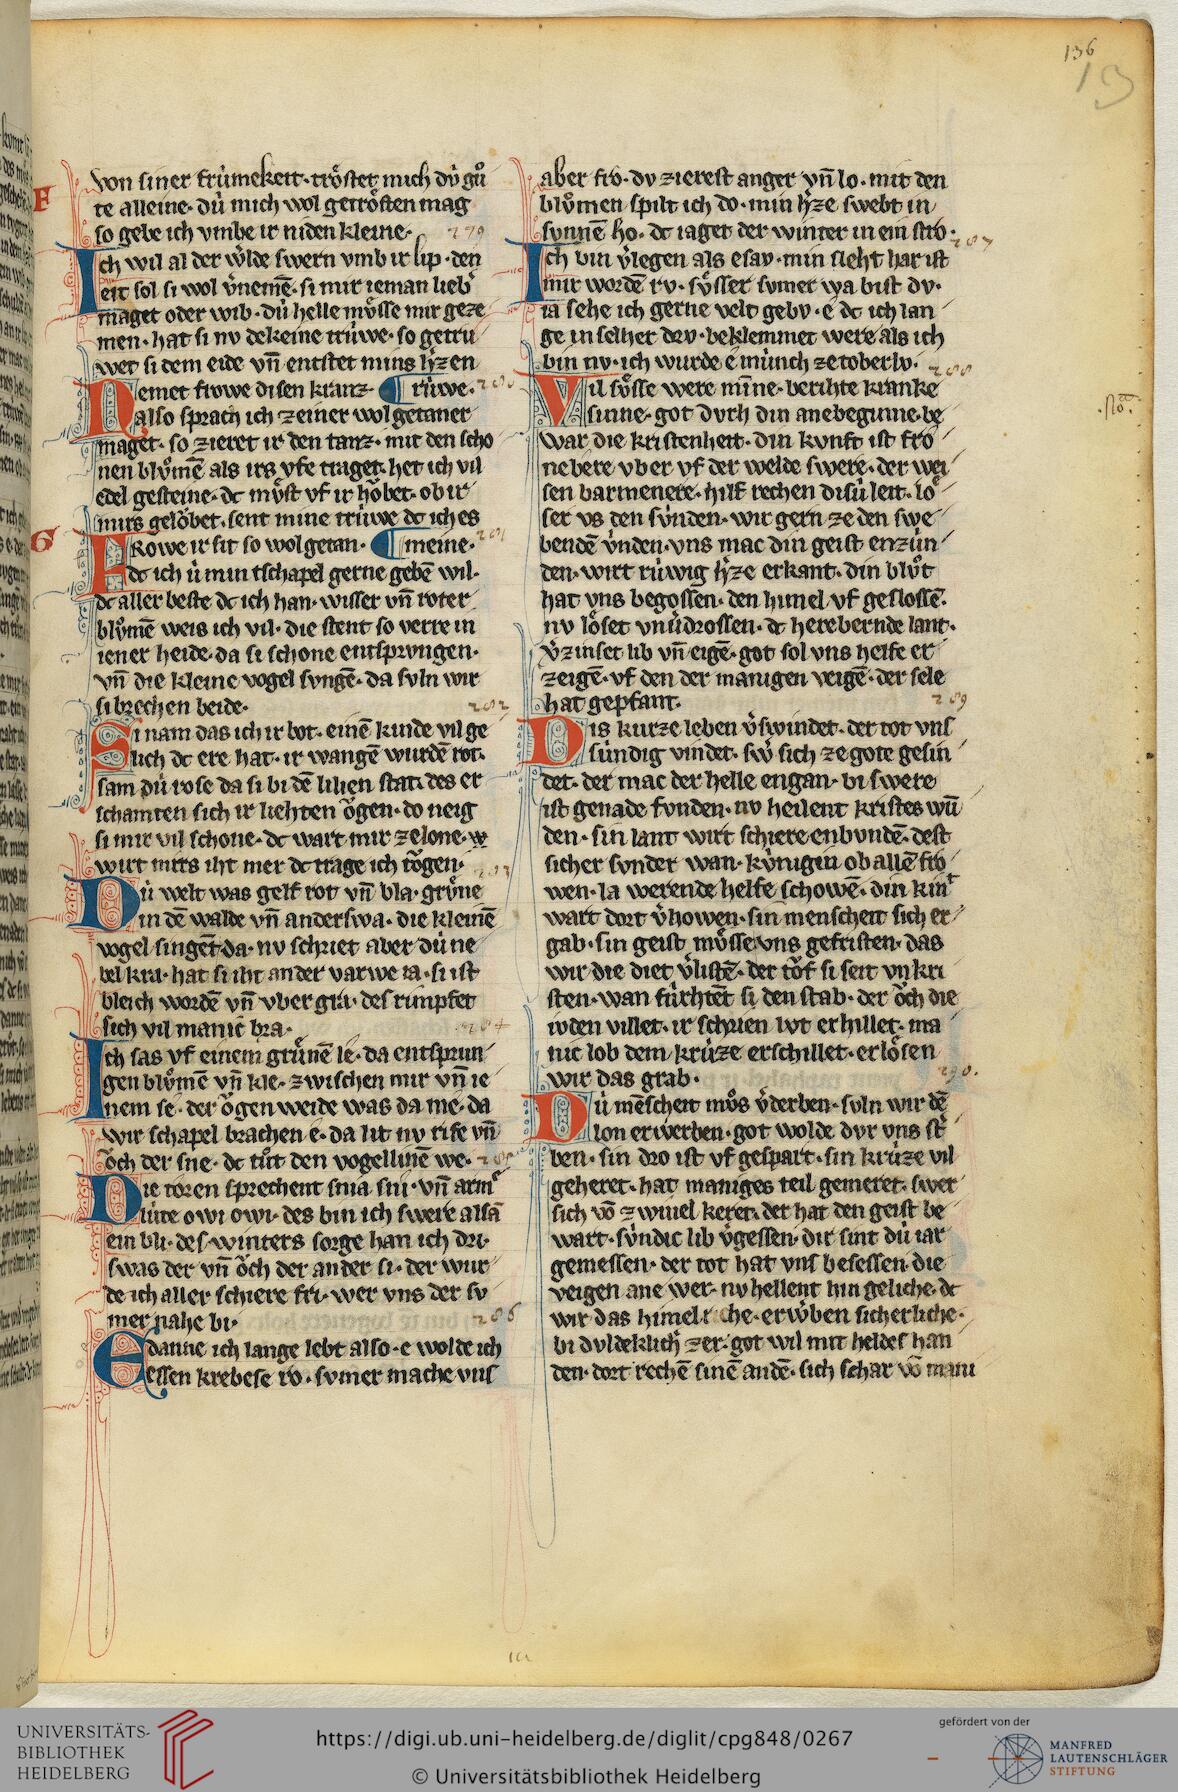 136
13
von siner frúmekeit· trôstet mich dú gůͦ
te alleine· dú mich wol getrôsten mag
so gebe ich vmbe ir niden kleine·
279
Ich wil al der w̓lde swern vmb ir lip· den
eit sol si wol v̓nemē· si mir ieman lieb̓
maget oder wib· dú helle mûsse mir geze
men· hat si nv dekeine trúwe· so getrú
wet si dem eide vn̄ entstet mins h̓zen
Nemet frowe disen kranz· ¶ trúwe· 280
also sprach ich zeiner wol getaner
maget· so zieret ir den tanz· mit den scho
nen blůmē als irs vfe traget· het ich vil
edel gesteine· dc mûst vf ir hôbet· ob ir
mirs gelôbet· sent mine trúwe dc ich es
Frowe ir sit so wol getan· ¶ meine· 281
dc ich ú min tschapel gerne gebē wil·
dc aller beste dc ich han· wisser vn̄ roter
blůmē weis ich vil· die stent so verre in
iener heide· da si schone entsprvngen·
vn̄ die kleine vogel svngē· da svln wir
si brechen beide·
282
Si nam das ich ir bot· einē kinde vil ge
lich dc ere hat· ir wangē wurdē rot·
sam dú rose da si bi dē lilien stat· des er
schamten sich ir liehten ôgen· do neig
si mir vil schone· dc wart mir ze lone· w
wirt mirs iht mer dc trage ich tôgen·
283
Dú welt was gelf rot vn̄ bla· grûne
in dē walde vn̄ anderswa· die kleinē
vogel singēt da· nv schriet aber dú ne
bel kra· hat si iht ander varwe ia· si ist
bleich wordē vn̄ vber gra· des rimpfet
sich vil manic bra·
284
Ich sas vf einem grûnē le· da entsprun
gen blůmē vn̄ kle· zwischen mir vn̄ ie
nem se· der ôgen weide was da me· da
wir schapel brachen e· da lit nv rife vn̄
ôch der sne· dc tůt den vogellinē we·
285
Die toren sprechent snia sni· vn̄ arm̓
lúte owi owi· des bin ich swere alsā
ein bli· des winters sorge han ich dri·
swas der vn̄ ôch der ander si· der wur
de ich aller schiere fri· wer vns der sv
mer nahe bi·
286
E danne ich lange lebt also· e wolde ich
essen krebese ro· svmer mache vns
aber fro· dv zierest anger vn̄ lo· mit den
blůmen spilt ich do· min h̓ze swebt in
svnnē ho· dc iaget der winter in ein stro·
287
Ich bin v̓legen als esav· min sleht har ist
mir wordē rv· sûsser svmer wa bist dv·
ia sehe ich gerne velt gebv· e dc ich lan
ge in selher drv· beklemmet were als ich
bin nv· ich wurde e múnch ze toberlv·
288
Vil sûsse were mīne· berihte kranke
sinne· got dvrh din anebeginne· be
war die kristenheit· din kvnft ist fro
nebere vber vf der welde swere· der wei
sen barmenere· hilf rechen disú leit· lo
ser vs den súnden· wir gern ze den swe
bendē v̓nden· vns mac din geist enzún
den· wirt rúwig h̓ze erkant· din blůt
hat vns begossen· den himel vf geslossē·
nv lôset vnu̓drossen· dc herebernde lant·
v̓zinset lib vn̄ eigē· got sol vns helfe er
zeigē· vf den der manigen veigē· der sele
hat gepfant·
289
Dis kurze leben v̓swindet· der tot vns
súndig vindet· sw̓ sich ze gote gesin
det· der mac der helle engan· bi swere
ist genade fvnden· nv heilent kristes wū
den· sin lant wirt schiere enbvndē· dest
sicher svnder wan· kúnigin ob allē fro
wen· la werende helfe schowē· din kint
wart dort v̓howen· sin menscheit sich er
gab· sin geist mûsse vns gefristen· das
wir die diet v̓listē· der tôf si seit vnkri
sten· wan fúrhtēt si den stab· der ôch die
ivden villet· ir schrien lvt erhillet· ma
nic lob dem krúze erschillet· erlôsen
wir das grab·
290·
Dú mēscheit můs v̓derben· svln wir dē
lon erwerben· got wolde dvr vns st̓
ben· sin dro ist vf gespart· sin krúze vil
geheret· hat maniges teil gemeret· swer
sich vō zwiuel keret· der hat den geist be
wart· súndic lib v̓gessen· dir sint dú iar
gemessen· der tot hat vns besessen· die
veigen ane wer· nv hellent hin geliche· dc
wir das himelriche· erw̓ben sicherliche·
bi dvldeklich̓ zer· got wil mit heldes han
den· dort rechē sinē andē· sich schar vō mani
F
G
UNIVERSITÄTS-
BIBLIOTHEK
HEIDELBERG
https://digi.ub.uni-heidelberg.de/diglit/cpg848/0267
© Universitätsbibliothek Heidelberg
gefördert von der
MANFRED
LAUTENSCHLÄGER
STIFTUNG